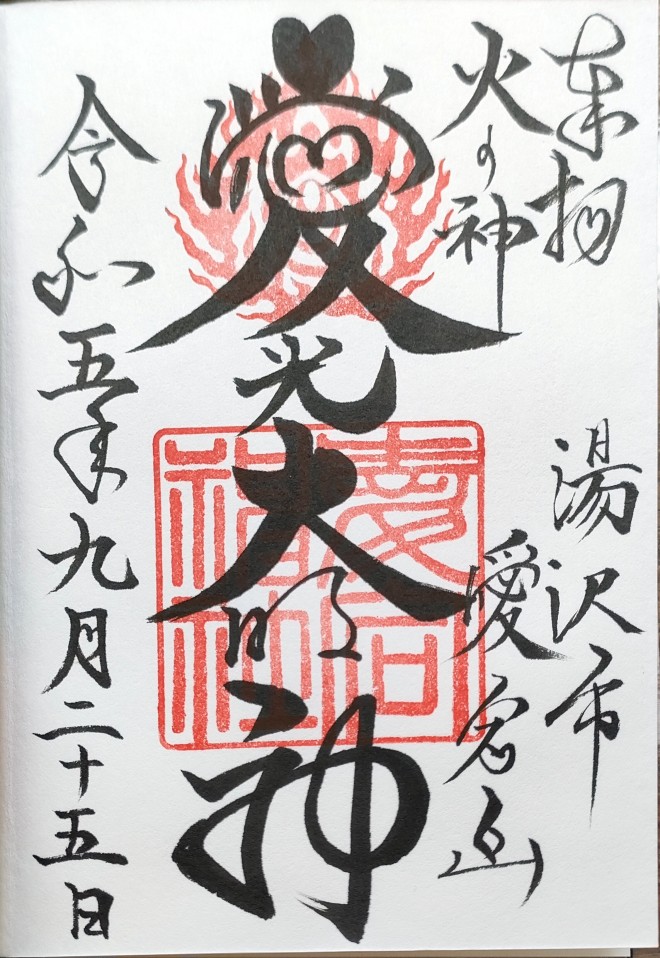 奉拝
湯沢市
火の神
愛宕山
愛光大明神
愛宕神社
令和五年九月二十五日